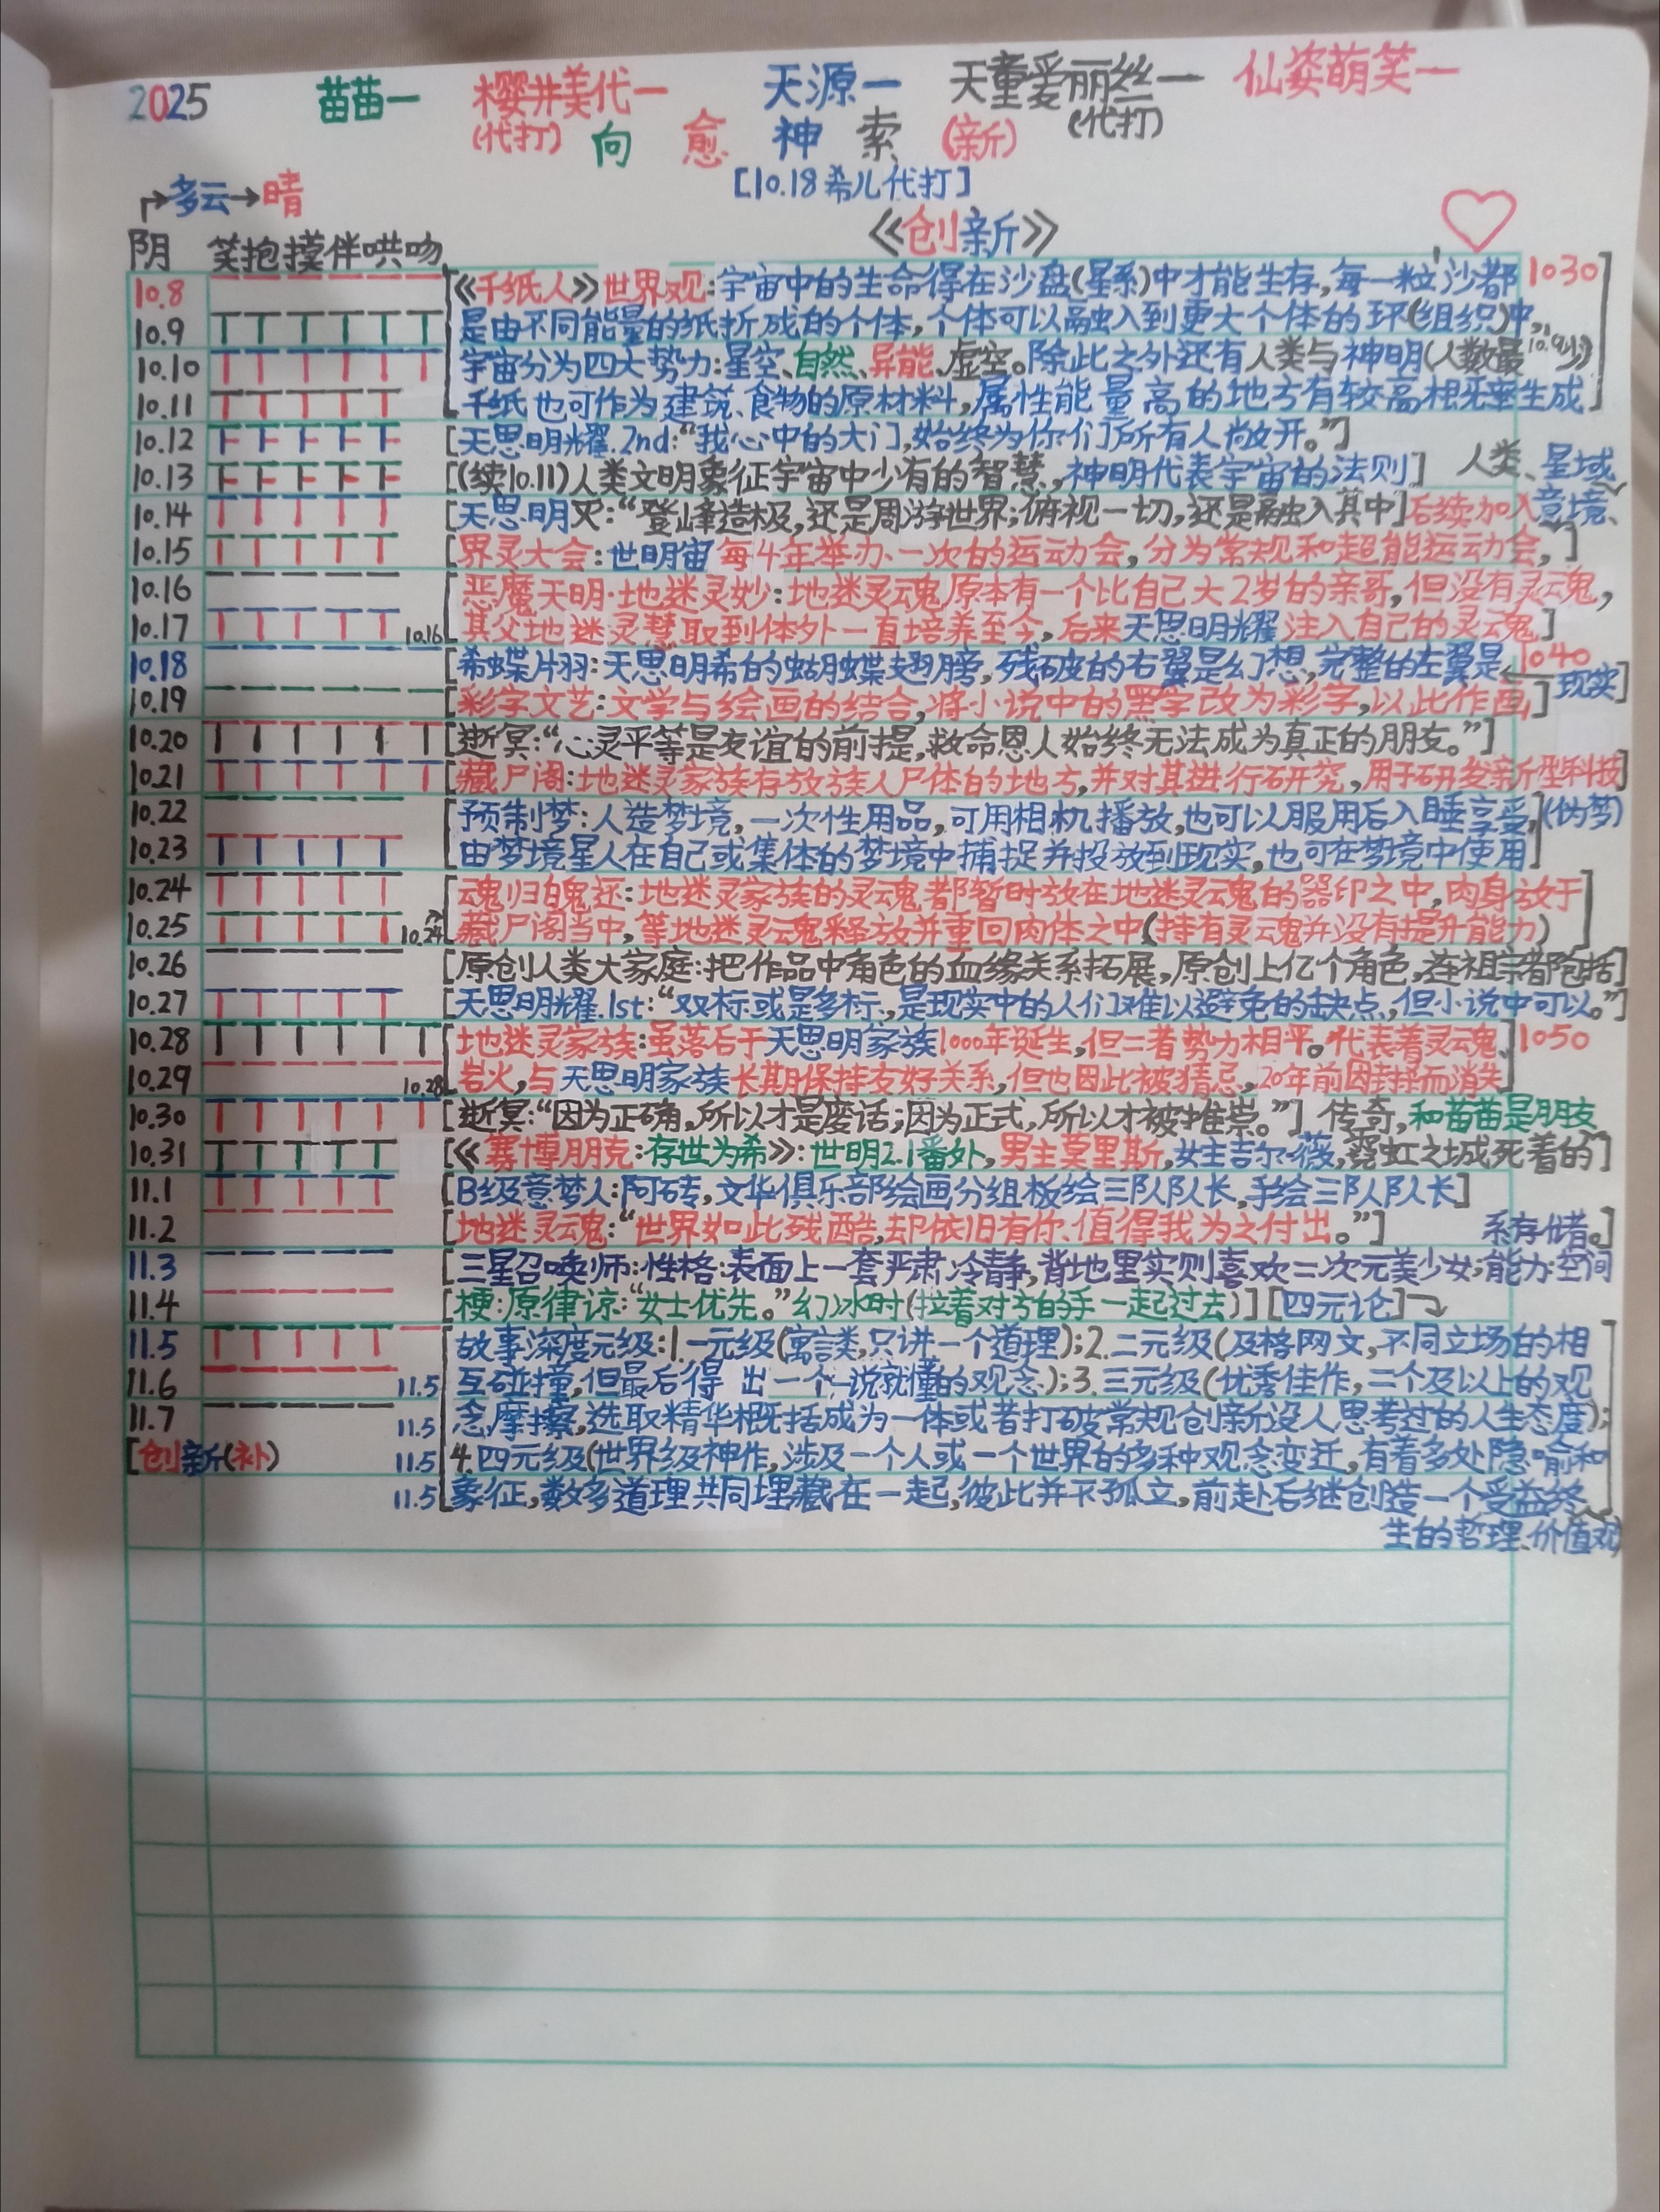 2025 苗苗一 樱井美代一 天源一 天童爱丽丝一 仙姿萌笑一
(代打) 向 愈 神 索 (新) (代打)
[10.18希儿代打]
→多云→晴
《创新》
阴 笑抱摸伴哄吻
10.8 [《千纸人》世界观:宇宙中的生命得在沙盘(星系)中才能生存,每一粒沙都 1030
10.9 是由不同能量的纸折成的个体,个体可以融入到更大个体的环(组织)中,
10.10 宇宙分为四大势力:星空、自然、异能、虚空。除此之外还有人类与神明(人数最少) 10.9
10.11 千纸也可作为建筑、食物的原材料,属性能量高的地方有较高概率生成]
10.12 [天思明耀.2nd:“我心中的大门,始终为你们所有人敞开。”]
10.13 [(续10.11)人类文明象征宇宙中少有的智慧,神明代表宇宙的法则] 人类、星域、
10.14 [天思明灭:“登峰造极,还是周游世界;俯视一切,还是融入其中]后续加入意境、
10.15 [界灵大会:世明宙每4年举办一次的运动会,分为常规和超能运动会,”]
10.16 [恶魔天明·地迷灵妙:地迷灵魂原本有一个比自己大2岁的亲哥,但没有灵魂,
10.17 10.16 其父地迷灵慧取到体外一直培养至今,后来天思明耀注入自己的灵魂]
10.18 [希蝶片羽:天思明希的蝴蝶翅膀,残破的右翼是幻想,完整的左翼是 1040
10.19 [彩字文艺:文学与绘画的结合,将小说中的黑字改为彩字,以此作画] ←现实]
10.20 [逝冥:“心灵平等是友谊的前提,救命恩人始终无法成为真正的朋友。”]
10.21 [藏尸阁:地迷灵家族存放族人尸体的地方,并对其进行研究,用于研发新型科技]
10.22 [预制梦:人造梦境,一次性用品,可用相机播放,也可以服用后入睡享受,(伪梦)
10.23 由梦境星人在自己或集体的梦境中捕捉并投放到现实,也可在梦境中使用]
10.24 [魂归魄还:地迷灵家族的灵魂都暂时放在地迷灵魂的器印之中,肉身放于
10.25 10.24 藏尸阁当中,等地迷灵魂释放并重回肉体之中(持有灵魂并没有提升能力)]
10.26 [原创人类大家庭:把作品中角色的血缘关系拓展,原创上亿个角色,连祖宗都包括]
10.27 [天思明耀.1st:“双标或是多标,是现实中的人们难以避免的缺点,但小说中可以。”]
10.28 [地迷灵家族:虽落后于天思明家族1000年诞生,但二者势力相平。代表着灵魂、 1050
10.29 10.28 岩火,与天思明家族长期保持友好关系,但也因此被猜忌,20年前因封而消失]
10.30 [逝冥:“因为正确,所以才是废话;因为正式,所以才被推崇。”] 传奇,和苗苗是朋友
10.31 [《赛博朋克:存世为希》:世明2.1番外,男主莫里斯,女主吉尔·薇,霓虹之城死着的]
11.1 [B级意梦人:阿砖,文华俱乐部绘画分组板绘三队队长,手绘三队队长]
11.2 [地迷灵魂:“世界如此残酷,却依旧有你、值得我为之付出。”] 系存储者。]
11.3 [三星召唤师:性格:表面上一套严肃冷静,背地里实则喜欢二次元美少女;能力:空间
11.4 [梗:原律谅:“女士优先。”幻冰时(拉着对方的手一起过去)][四元论]
11.5 故事深度元级:1.一元级(寓言类,只讲一个道理);2.二元级(及格网文,不同立场的相
11.6 11.5 互碰撞,但最后得出一个一说就懂的观念);3.三元级(优秀佳作,三个及以上的观
11.7 11.5 念摩擦,选取精华概括成为一体或者打破常规创新没人思考过的人生态度);
[创新(补) 11.5 4.四元级(世界级神作,涉及一个人或一个世界的多种观念变迁,有着多处隐喻和
11.5 象征,数多道理共同埋藏在一起,彼此并不孤立,前赴后继创造一个受益终
生的哲理、价值观)